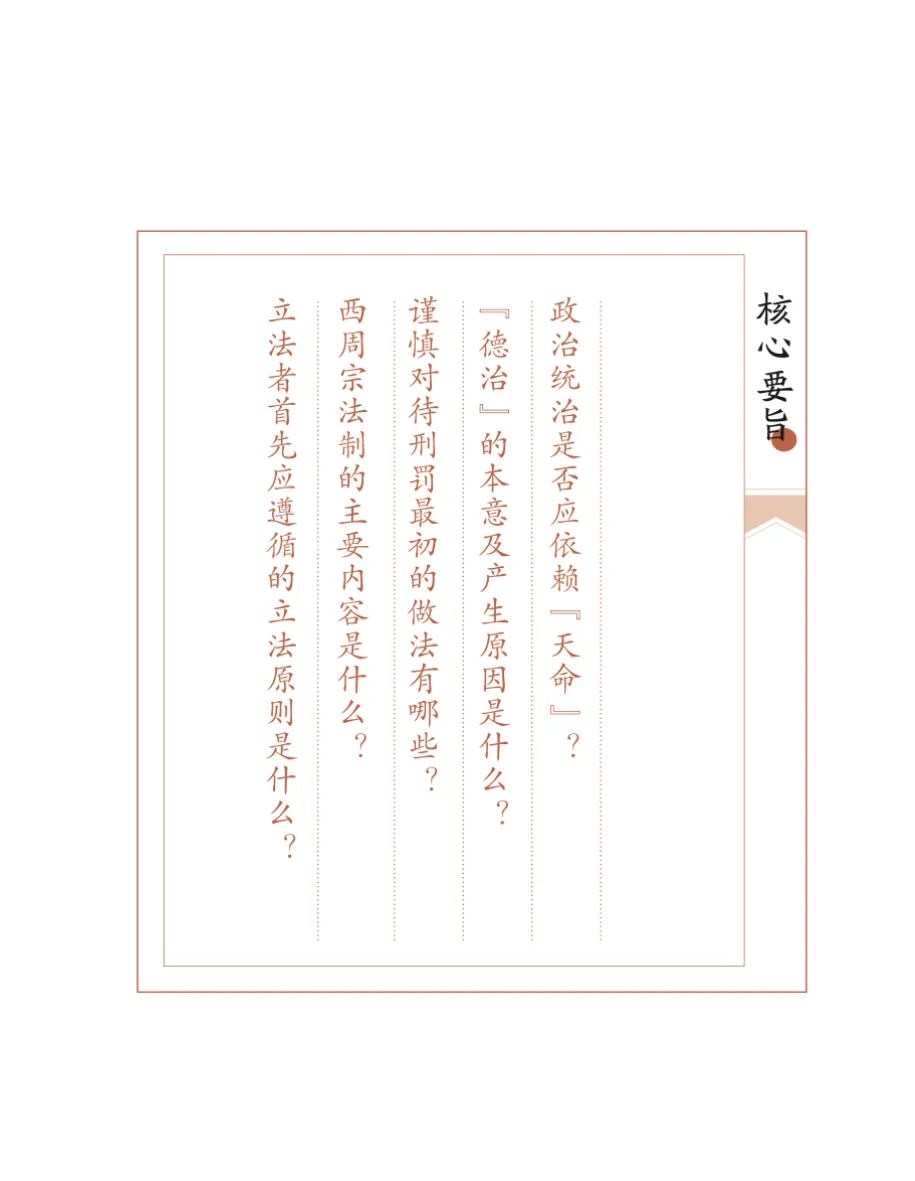 核心要旨
政治统治是否应依赖『天命』？
『德治』的本意及产生原因是什么？
谨慎对待刑罚最初的做法有哪些？
西周宗法制的主要内容是什么？
立法者首先应遵循的立法原则是什么？